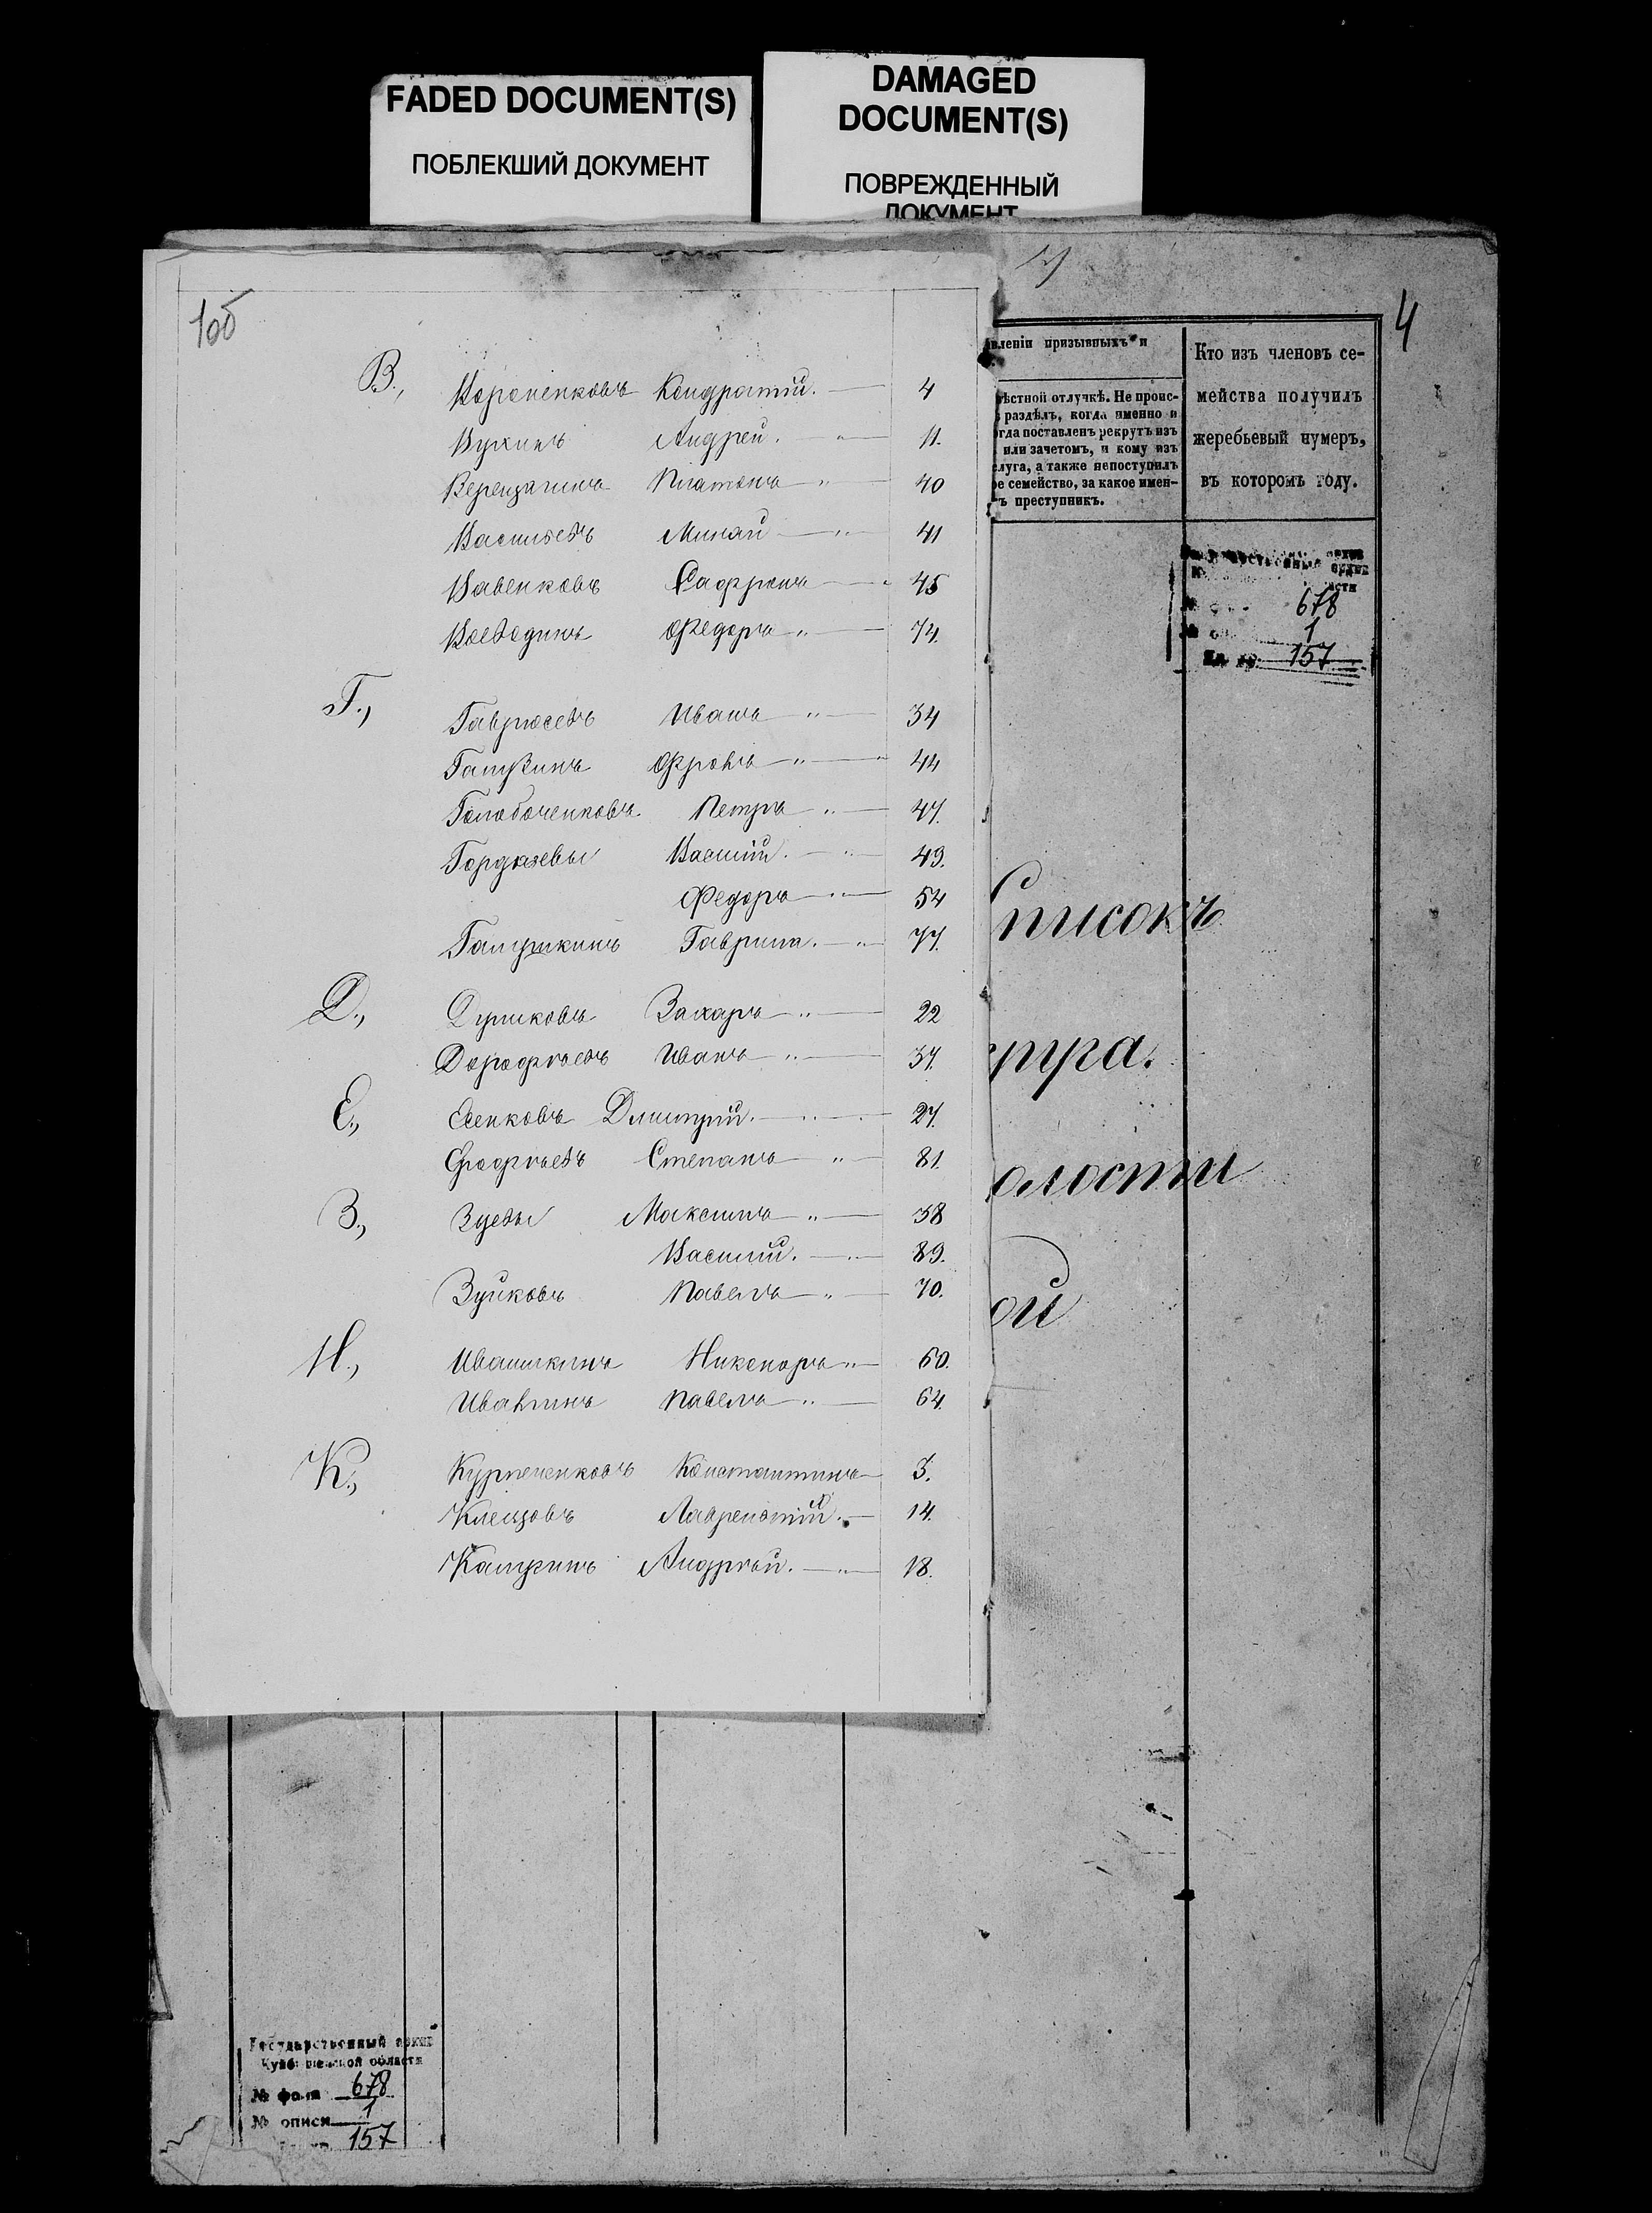 FADED DOCUMENT(S)
ПОБЛЕКШИЙ ДОКУМЕНТ
DAMAGED
DOCUMENT(S)
ПОВРЕЖДЕННЫЙ
ДОКУМЕНТ
4
В., Вороненковъ Кондратій. 4
Андрей. 11.
Верещагинъ Платонъ " 40
Васильевъ Минай " 41
Вавенковъ Сафронъ 45
Воеводинъ Ѳедоръ " 74.
Г., Гаврюсевъ Иванъ " 34
Фролъ " 44
Голобоченковъ Петръ " 47.
Гордѣевы Василій. " 49.
Федоръ " 54
Галушкинъ Гаврила. " 77.
Д., Захаръ " 22
Дорофѣевъ Иванъ " 37.
Е., Есенковъ Дмитрій. 27.
Степанъ " 81.
З., Зуевы Максимъ " 38
Василий. 89.
Зуйковъ Павелъ " 70.
И., Ивашкинъ Никаноръ " 60.
Ивлинъ Павелъ " 64.
К., Константинъ 3.
Клецовъ Лаврентій. 14.
Андрѣй. " 18.
вленіи призывныхъ и
ѣстной отлучкѣ. Не проис-
раздѣлъ, когда именно и
огда поставленъ рекрутъ изъ
или зачетомъ, и кому изъ
слуга, а также непоступилъ
ое семейство, за какое имен-
ъ преступникъ.
Кто изъ членовъ се-
мейства получилъ
жеребьевый нумеръ,
въ которомъ году.
678
1
157
Списокъ
олости
ой
Государственный архив
Куйбышевской области
№ фонда 678
№ описи 1
157